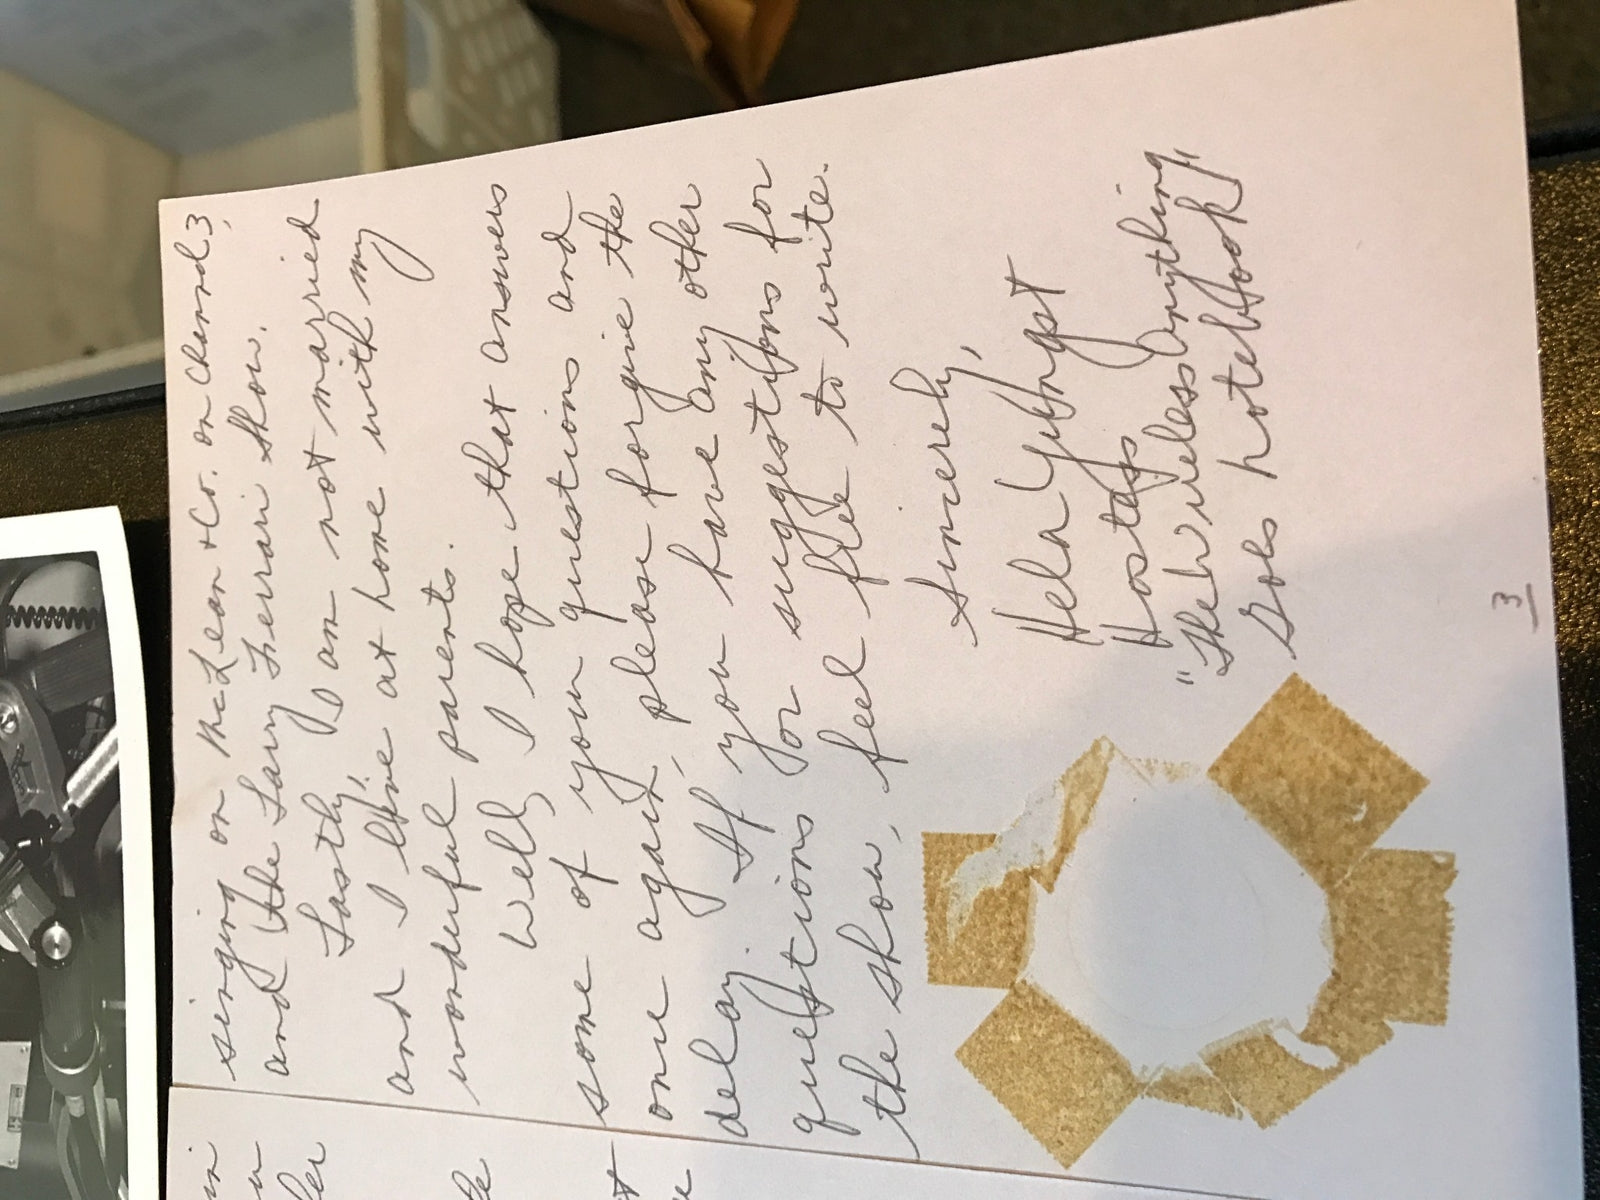 singing on McLean + Co. on Channel 3,
and the Larry Ferrari Show.
Lastly, I am not married
and I live at home with my
wonderful parents.
Well, I hope that answers
some of your questions and
once again, please forgive the
delay. If you have any other
questions or suggestions for
the show, feel free to write.
Sincerely,
Helen
Hostess
"The Wireless Anything
Goes Notebook"
3